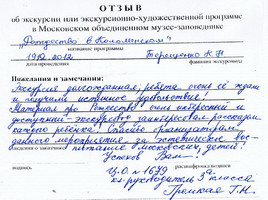 ОТЗЫВ
об экскурсии или экскурсионно-художественной программе
в Московском объединенном музее-заповеднике
„Рождество в Коломенском"
название программы
19.12.2012 Терещенко К.Н
дата проведения фамилия экскурсовода
Пожелания и замечания:
Экскурсия долгожданная, ребята очень её ждали
и получили истинное удовольствие!
Материал про „Рождество" очень интересный и
доступный - экскурсовод заинтересовал рассказом
каждого ребёнка! Спасибо организаторам
данного мероприятия за эстетическое вос-
питание московских детей!
Успехов Вам
подпись
Ц.О. № 1679
кл. руководитель 3 класса
Г.Н.